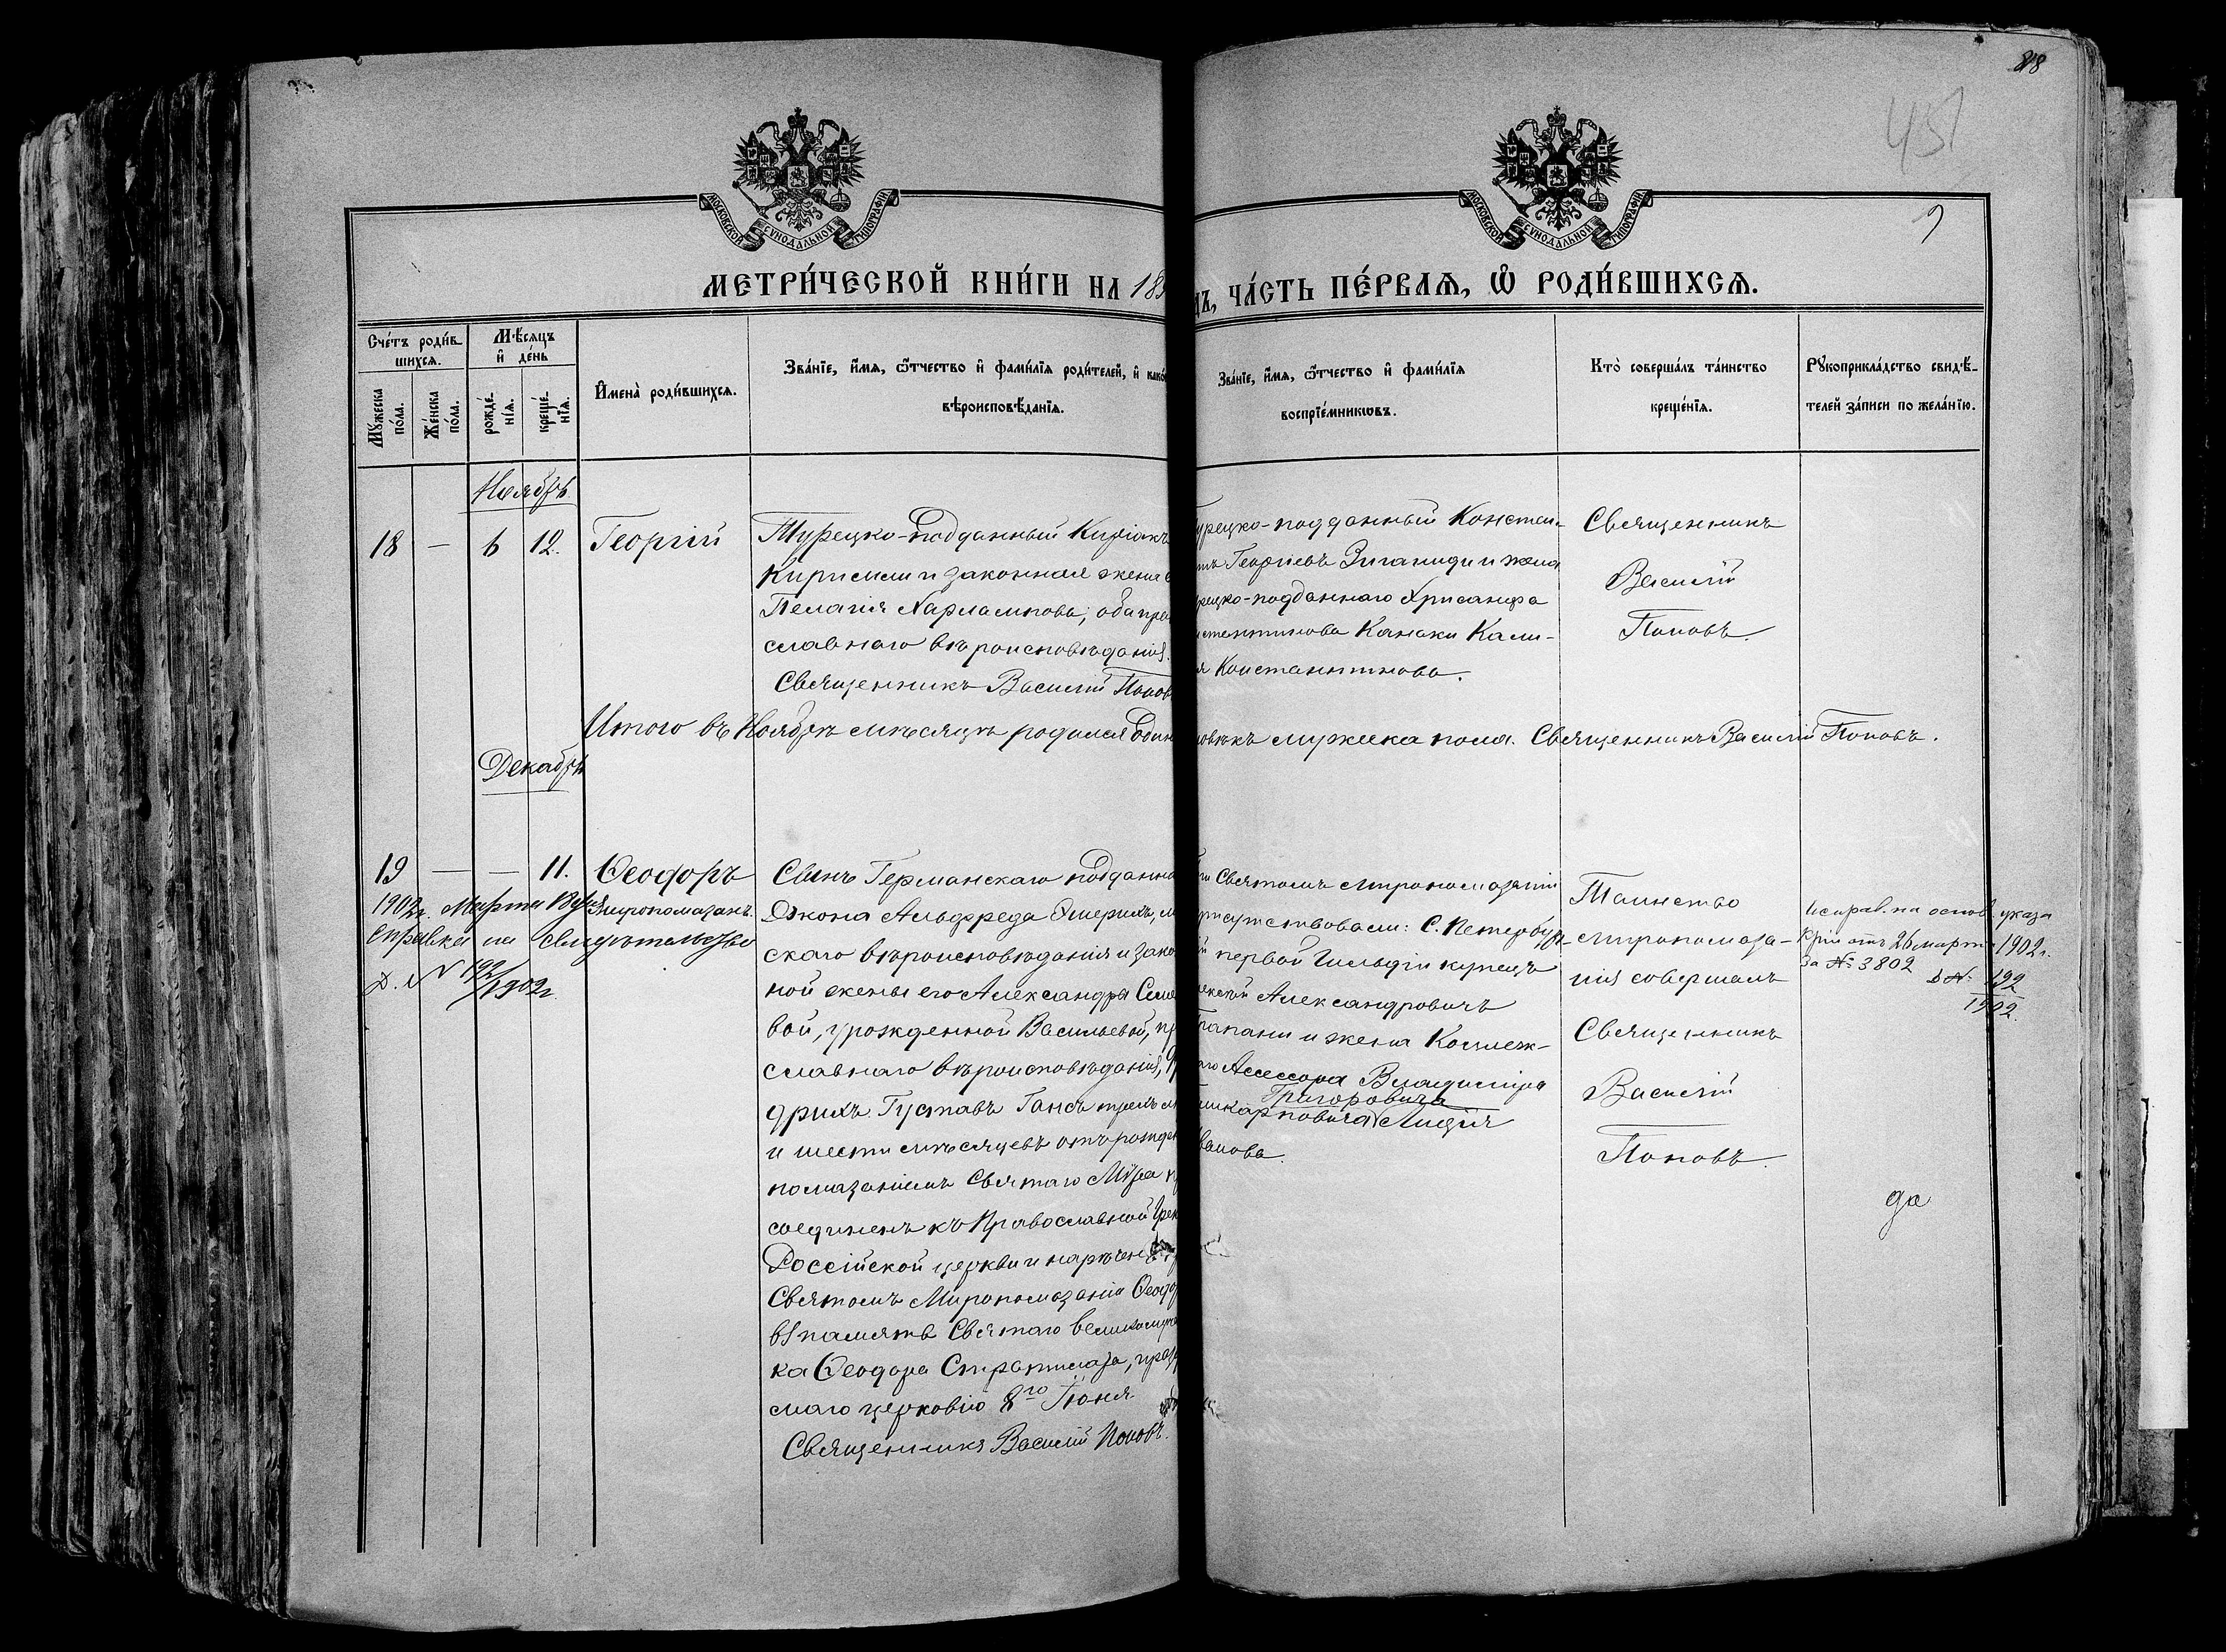 818
451
9
МОСКОВСКОЙ СѴНОДАЛЬНОЙ ТИПОГРАФІИ
МОСКОВСКОЙ СѴНОДАЛЬНОЙ ТИПОГРАФІИ
МЕТРИ́ЧЕСКОЙ КНИ́ГИ НА 189
ЧА́СТЬ ПЕ́РВАѦ, Ѡ РОДИ́ВШИХСѦ.
Сче́тъ роди́в-
шихсѧ.
Мꙋ́жеска по́ла.
Же́нска по́ла.
Мѣ́сѧцъ
и҆ де́нь
рожде́-нїѧ.
креще́-нїѧ.
И҆мена̀ роди́вшихсѧ.
Зва́нїе, и҆́мѧ, ѻ҆́тчество и҆ фами́лїѧ роди́телей, и҆
вѣроисповѣ́данїѧ.
Зва́нїе, и҆́мѧ, ѻ҆́тчество и҆ фами́лїѧ
воспрїе́мникѡвъ.
Кто̀ соверша́лъ та́инство
креще́нїѧ.
Рꙋкоприкла́дство свидѣ́-
телей за́писи по жела́нїю.
Ноябрь
18 — 6 12. Георгій
Турецко-подданный Киріакъ
и законная жена
Пелагія Харлампова, оба пра
славнаго вѣроисповѣданія.
Священникъ Василій Попов
урецко-подданный Констан-
Георгіевъ и жена
рецко-подданнаго Хрисанфа
стантинова Канаки Кали-
я Константинова.
Священникъ
Василій
Поповъ.
Итого въ Ноябрѣ мѣсяцѣ родился Один
овѣкъ мужеска пола. Священникъ Василій Поповъ.
Декабрь
19 — — 11. Ѳеодоръ
миропомазан.
1902 г. Марта
справка на свидѣтельство
Д. № 192/1902 г.
Сынъ Германскаго подданна
Джона Альфреда Эмерихъ, л
скаго вѣроисповѣданія и зако
ной жены его Александры Семе
вой, урожденной Васильевой, пр
славнаго вѣроисповѣданія, Ф
дрихъ Густавъ Гансъ трехъ л
и шести мѣсяцевъ отъ рожде
помазаніемъ Святаго Мѵра п
соединенъ къ Православной Грек
Россійской церкви и нареченъ
Святомъ Миропомазаніи Ѳеодо
въ память Святаго великому
ка Ѳеодора Стратилата, празд
маго церковію 8го Іюня.
Священникъ Василій Поповъ.
Святомъ Миропомазаніи
рисутствовали: С. Петербур-
й первой Гильдіи купецъ
лексѣй Александровичъ
Трапани и жена Коллеж-
аго Ассесора Владиміра
Григоровича
Поликарповича Лидія
Иванова.
Таинство
миропомаза-
нія совершалъ
Священникъ
Василій
Поповъ.
Исправ. на основ. указа
отъ 26 марта 1902 г.
за № 3802
Д № 192
1902.
да